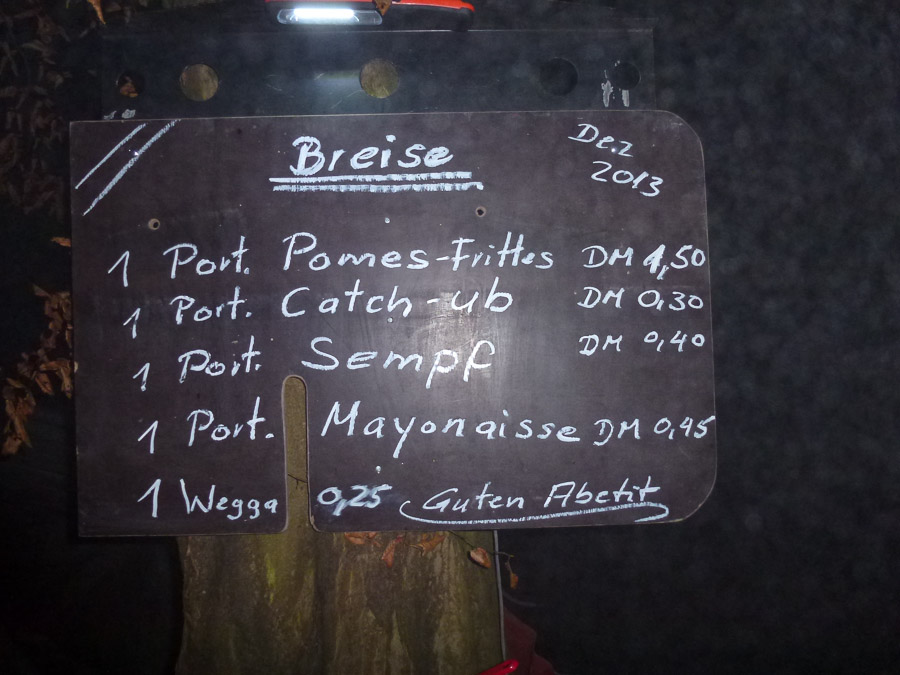 Breise
Dez
2013
1 Port. Pomes-Frittes DM 1,50
1 Port. Catch-ub DM 0,30
1 Port. Sempf DM 0,40
1 Port. Mayonaisse DM 0,45
1 Wegga 0,25 Guten Abetit